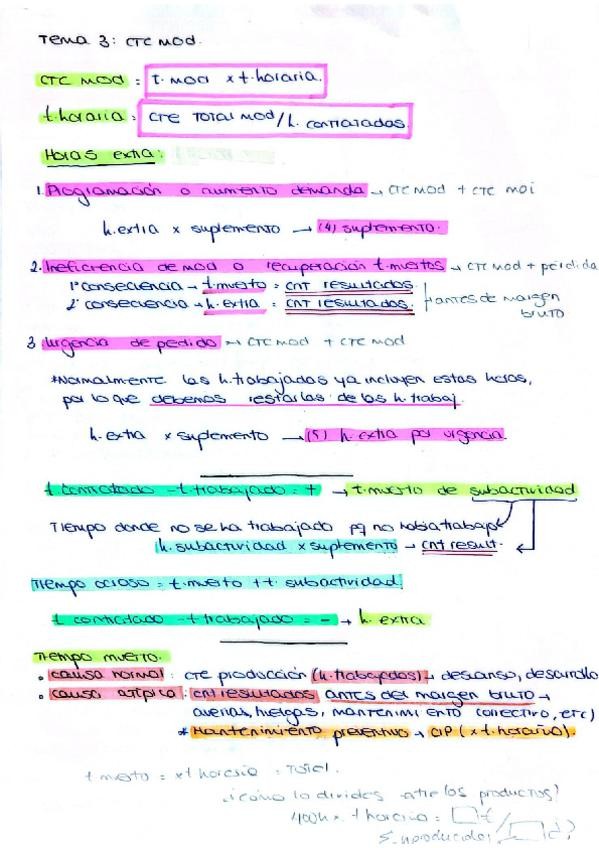 Tema 3: CTE MOD.
CTE MOD = t. MOD x t. horaria.
t. horaria = CTE TOTAL MOD / h. contratadas.
Horas extra:
1. Programación o aumento demanda → CTE MOD + CTE MOI
h. extra x suplemento → (4) suplemento.
2. Ineficiencia de MOD o recuperación t. muertos → CTE MOD + pérdida
1ª consecuencia → t. muerto = CNT resultados.
2ª consecuencia → h. extra = CNT resultados.
antes de margen
bruto
3. Urgencia de pedido → CTE MOD + CTE MOD
*Normalmente las h. trabajadas ya incluyen estas horas,
por lo que debemos restarlas de las h. trabaj.
h. extra x suplemento → (5) h. extra por urgencia.
t. contratado - t. trabajado = + → t. muerto de subactividad
Tiempo donde no se ha trabajado pq no había trabajo
h. subactividad x suplemento → CNT result.
Tiempo ocioso = t. muerto + t. subactividad.
t. contratado - t. trabajado = - → h. extra
Tiempo muerto.
• causa normal: CTE producción (h. trabajadas) → descanso, desarrollo
• causa atípica: CNT resultados antes del margen bruto →
averías, huelgas, mantenimiento correctivo, etc)
* Mantenimiento preventivo → CIP (x t. horaria).
t. muerto = x t. horaria = Total.
¿cómo lo divides entre los productos?
400h x t. horaria =